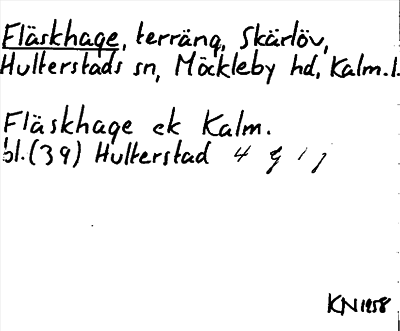 Fläskhage, terräng, Skärlöv,
Hulterstads sn, Möckleby hd, Kalm.l.
Fläskhage ek Kalm.
bl.(39) Hulterstad 4 g i j
KN 1958